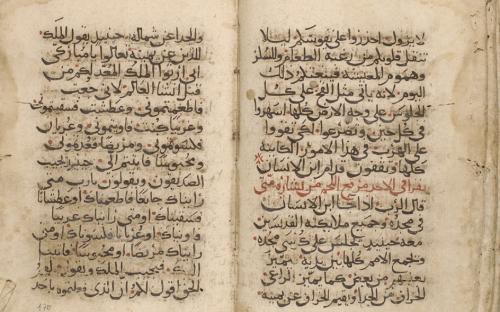 لا يزول احترزوا على نفوسكم ليلا
تثقل قلوبكم من رغبة الطعام والسكر
وهموم المعيشة فيبغتكم ذلك
اليوم لانه ياتي مثل الفخ على كل
الجلوس على وجه الارض كلها اسهروا
في كل حين وتضرعوا لكي تقووا
على الهرب في هذا الامور الكاينة
كلها وتقفون قدام ابن الانسان
يقرا في الاحد مرفع اللحم من بشارة متى
قال الرب اذا جا ابن الانسان
في مجده وجميع ملايكته القديسين
معه حينيذ يجلس على كرسي مجده
وتجمع الامم كلها بين يديه يميز
بعضهم من بعض كما يميز الراعي
الخراف من الجدا ويقيم الخراف عن يمينه
والجدا عن شماله حينيذ يقول الملك
للذين عن يمينه تعالوا يا مباركي
ابي ارثوا الملك المعد لكم من
قبل انشا العالم لاني جعت
فاطعمتموني وعطشت فسقيتموني
وغريبا كنت فاويتموني وعريان
فكسوتموني ومريضا فعدتموني
ومحبوسا فاتيتم الي حينيذ يجيب
الصديقون ويقولون يارب متى
رايناك جايعا فاطعمناك او عطشانا
فسقيناك او متى رايناك غريبا
فاويناك او عريانا فكسوناك او متى
رايناك مريضا او محبوسا فاتينا
اليك فيجيب الملك ويقول
الحق اقول لكم ان الذي فعلتموه باحد
170